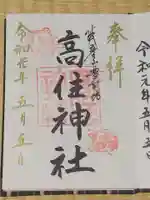 奉拝
高住神社
令和元年五月五日
令和元年五月五日